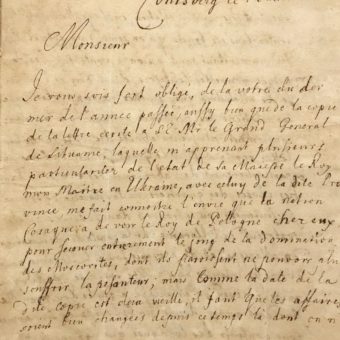 Monsieur
Je vous suis fort obligé, de la votre du der
nier de l'année passée, aussy bien que de la copie
de la lettre, ecrite à S.E. Mr le Grand General
de Lituanie, laquelle m'apprenant plusieurs
particularitez de l'etat de sa Majesté le Roy
mon Maitre en Ukraine, avec celuy de la dite Pro
vince, me fait connoitre l'envie que la nation
Cosaque a de voir le Roy de Pologne chez eux
pour secouer entierement le joug de la Domination
des Moscovites, dont ils paroissent ne pouvoir plus
souffrir la pesanteur; mais comme la date de la
dite copie est deja vieille, il faut que les affaires
soient bien changées depuis ce temps là dont on n